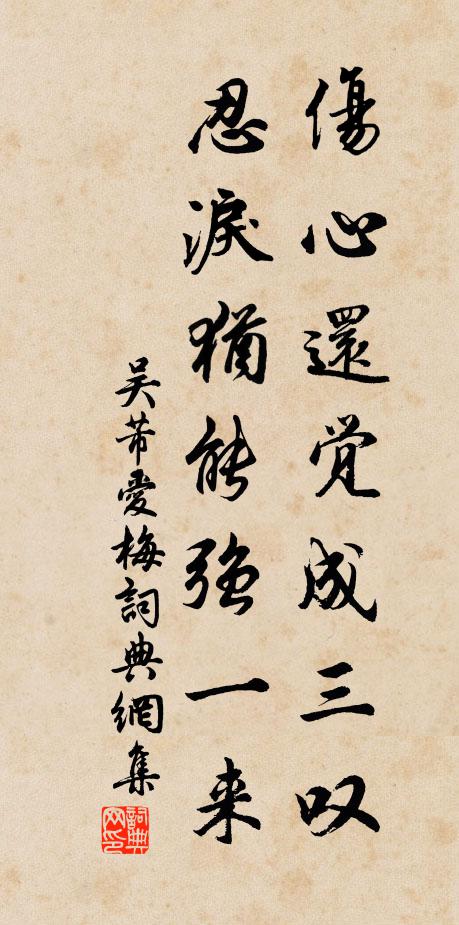 傷心還觉成三叹
忍淚猶能強一来
吴芾愛梅詞典網集
詞典网印